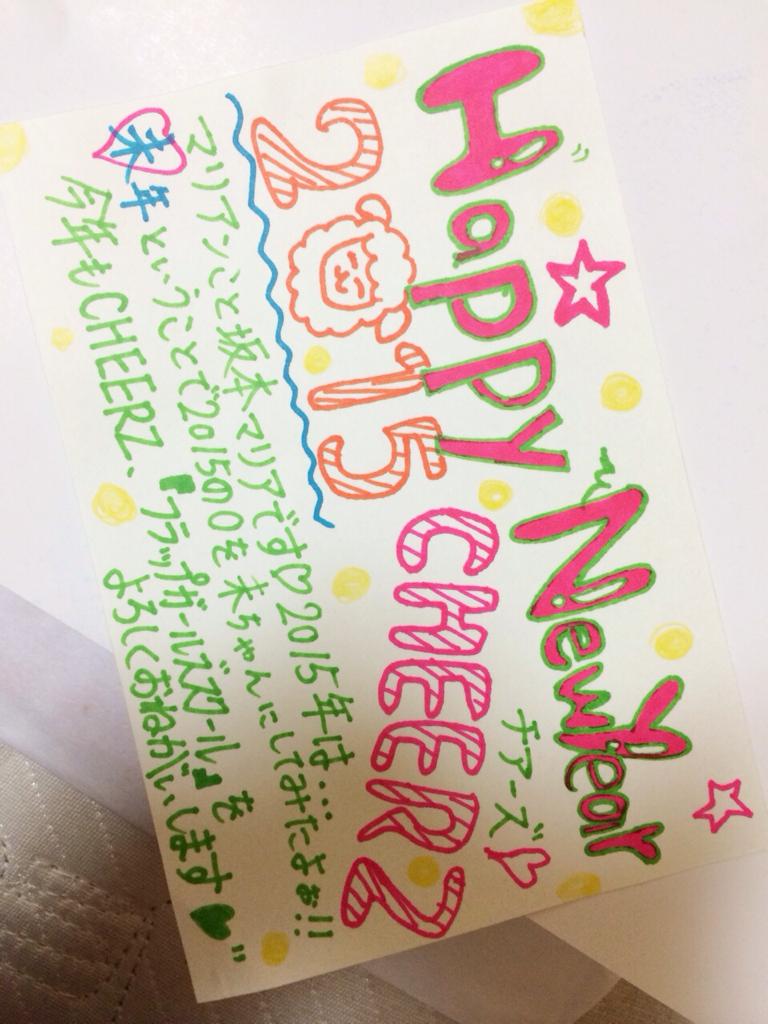 Happy New Year
2015 CHEERZ
チアーズ♡
マリアンこと坂本マリアです♡2015年は…
未年ということで2015の0を未ちゃんにしてみたよぉ!!
今年もCHEERZ、『フラップガールズスクール』を
よろしくおねがいします♥